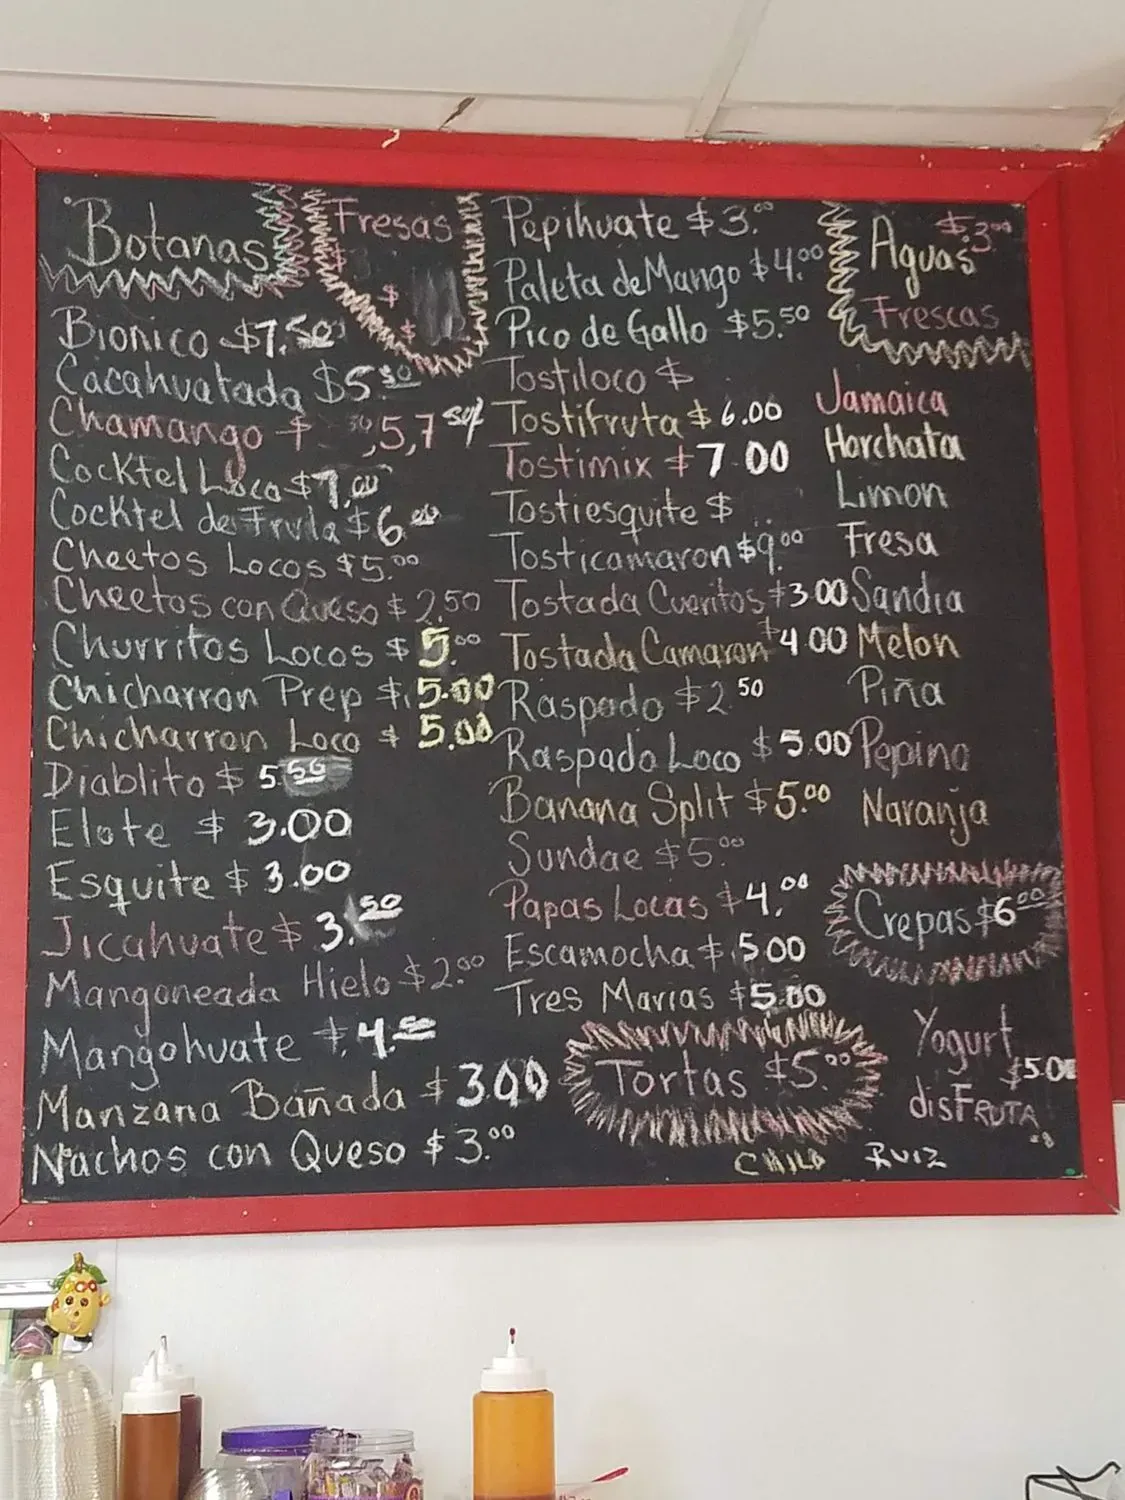 Botanas
Bionico $7.50
Cacahuatada $5.50
Chamango $ ,5,7.50
Cocktel Loco $7.00
Cocktel de Fruta $6.00
Cheetos Locos $5.00
Cheetos con Queso $2.50
Churritos Locos $5.00
Chicharron Prep $5.00
Chicharron Loco $5.00
Diablito $5.50
Elote $3.00
Esquite $3.00
Jicahuate $3.50
Mangoneada Hielo $2.00
Mangohuate $4.00
Manzana Bañada $3.00
Nachos con Queso $3.00
Fresas
$
$
$
Pepihuate $3.00
Paleta de Mango $4.00
Pico de Gallo $5.50
Tostiloco $
Tostifruta $6.00
Tostimix $7.00
Tostiesquite $
Tosticamaron $9.00
Tostada Cueritos $3.00
Tostada Camaron $4.00
Raspado $2.50
Raspado Loco $5.00
Banana Split $5.00
Sundae $5.00
Papas Locas $4.00
Escamocha $5.00
Tres Marias $5.00
Tortas $5.00
Aguas $3.00
Frescas
Jamaica
Horchata
Limon
Fresa
Sandia
Melon
Piña
Pepino
Naranja
Crepas $6.00
Yogurt
$5.00
disFRUTA
CHILO RUIZ